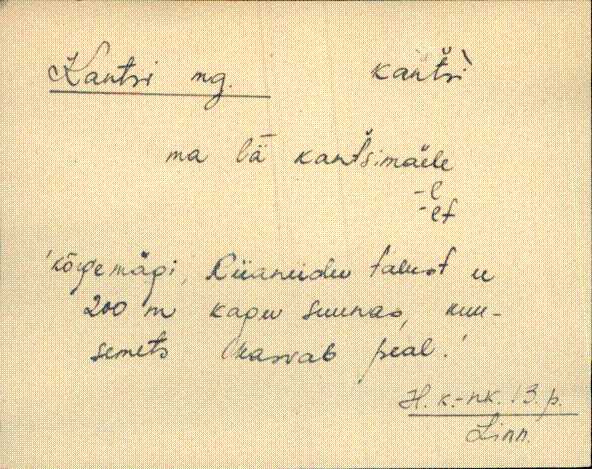 Kantsi mg. kańtśì
ma lǟ kańtśimäele
-l
-lt
'kõrgemägi, talust u
200 m kagu suunas, kuu-
semets kasvab peal.'
H. k.-nk. 13. p.
Linn.